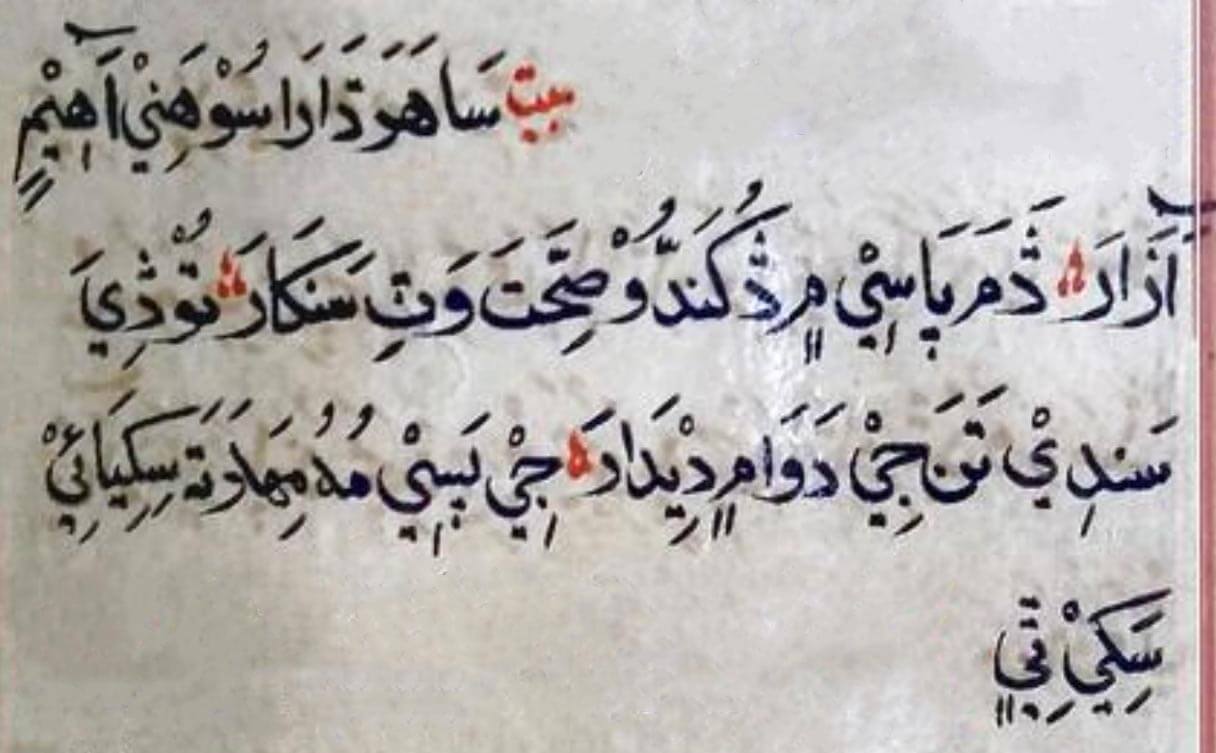 بيت سَاهَرَ ڌَارَا سُوْهَنِيْ آهِيْمٍ
آزَارَ ه ڎَمَ پَاسِيْ مٍ ڎُکَندُّوْ صِحَّتَ وَٽِ سَنکَارَ ه تُوْڎِيَ
سَندِيْ تَنَ جِيْ دَوَا مٍ دِيْدَارَ ه جِيْ پَسِيْ مُهُ مِهَادَ تَه سِکِيَائِيْ
سَکِيْ ٿِيٍ